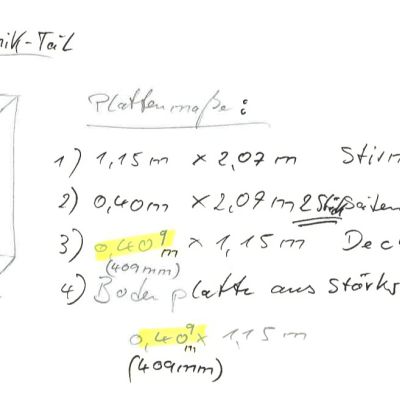 nik-Teil
Plattenmaße:
1) 1,15 m × 2,07 m Stirn
2) 0,40 m × 2,07 m 2 Stück Seiten
3) 0,409 m × 1,15 m Dec
(409mm)
4) Bodenplatte aus Stärks
0,409 m × 1,15 m
(409mm)